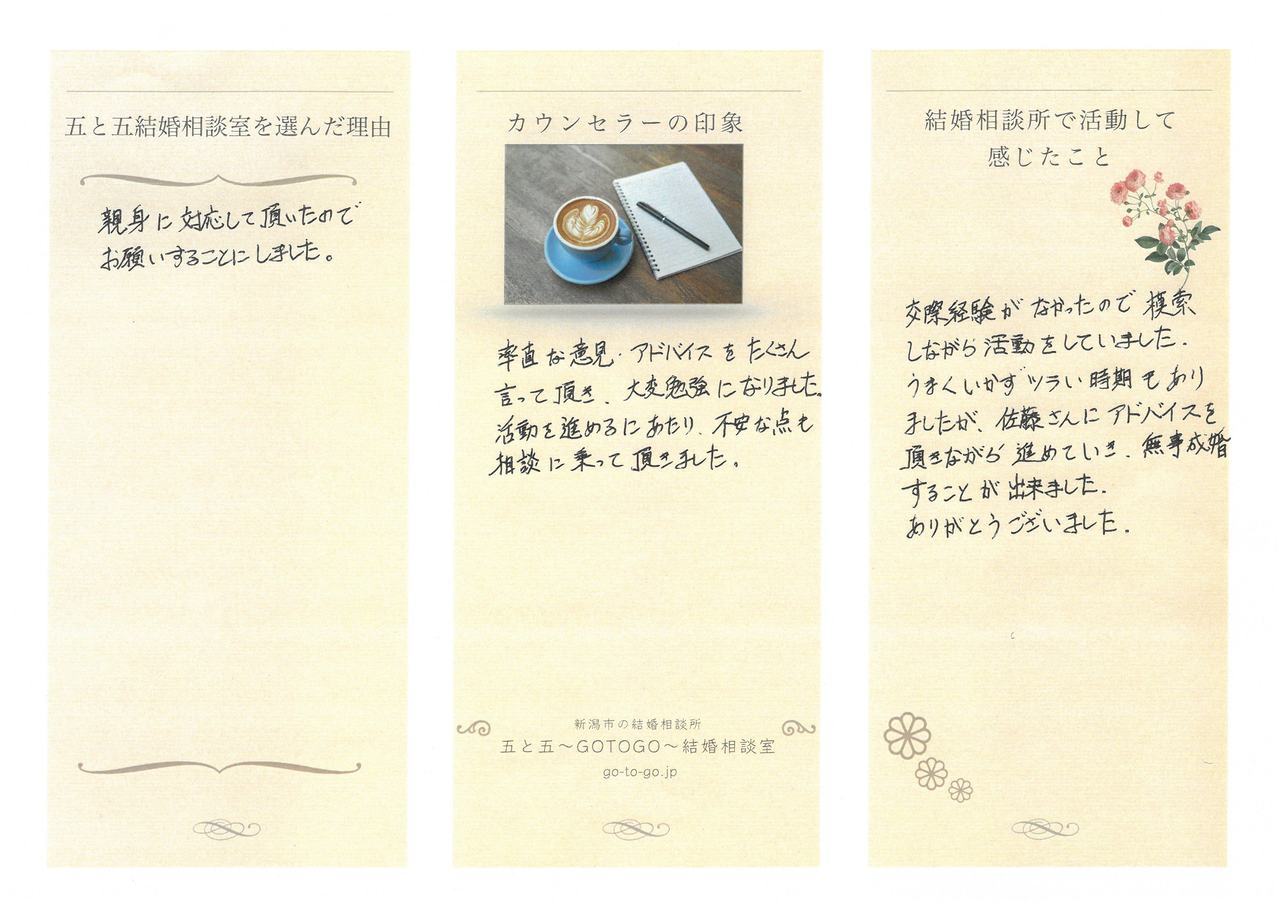 五と五結婚相談室を選んだ理由
親身に対応して頂いたので
お願いすることにしました。
カウンセラーの印象
率直な意見・アドバイスをたくさん
言って頂き、大変勉強になりました。
活動を進めるにあたり、不安な点も
相談に乗って頂きました。
新潟市の結婚相談所
五と五〜GOTOGO〜結婚相談室
go-to-go.jp
結婚相談所で活動して
感じたこと
交際経験がなかったので模索
しながら活動をしていました。
うまくいかずツラい時期もあり
ましたが、佐藤さんにアドバイスを
頂きながら進めていき、無事成婚
することが出来ました。
ありがとうございました。